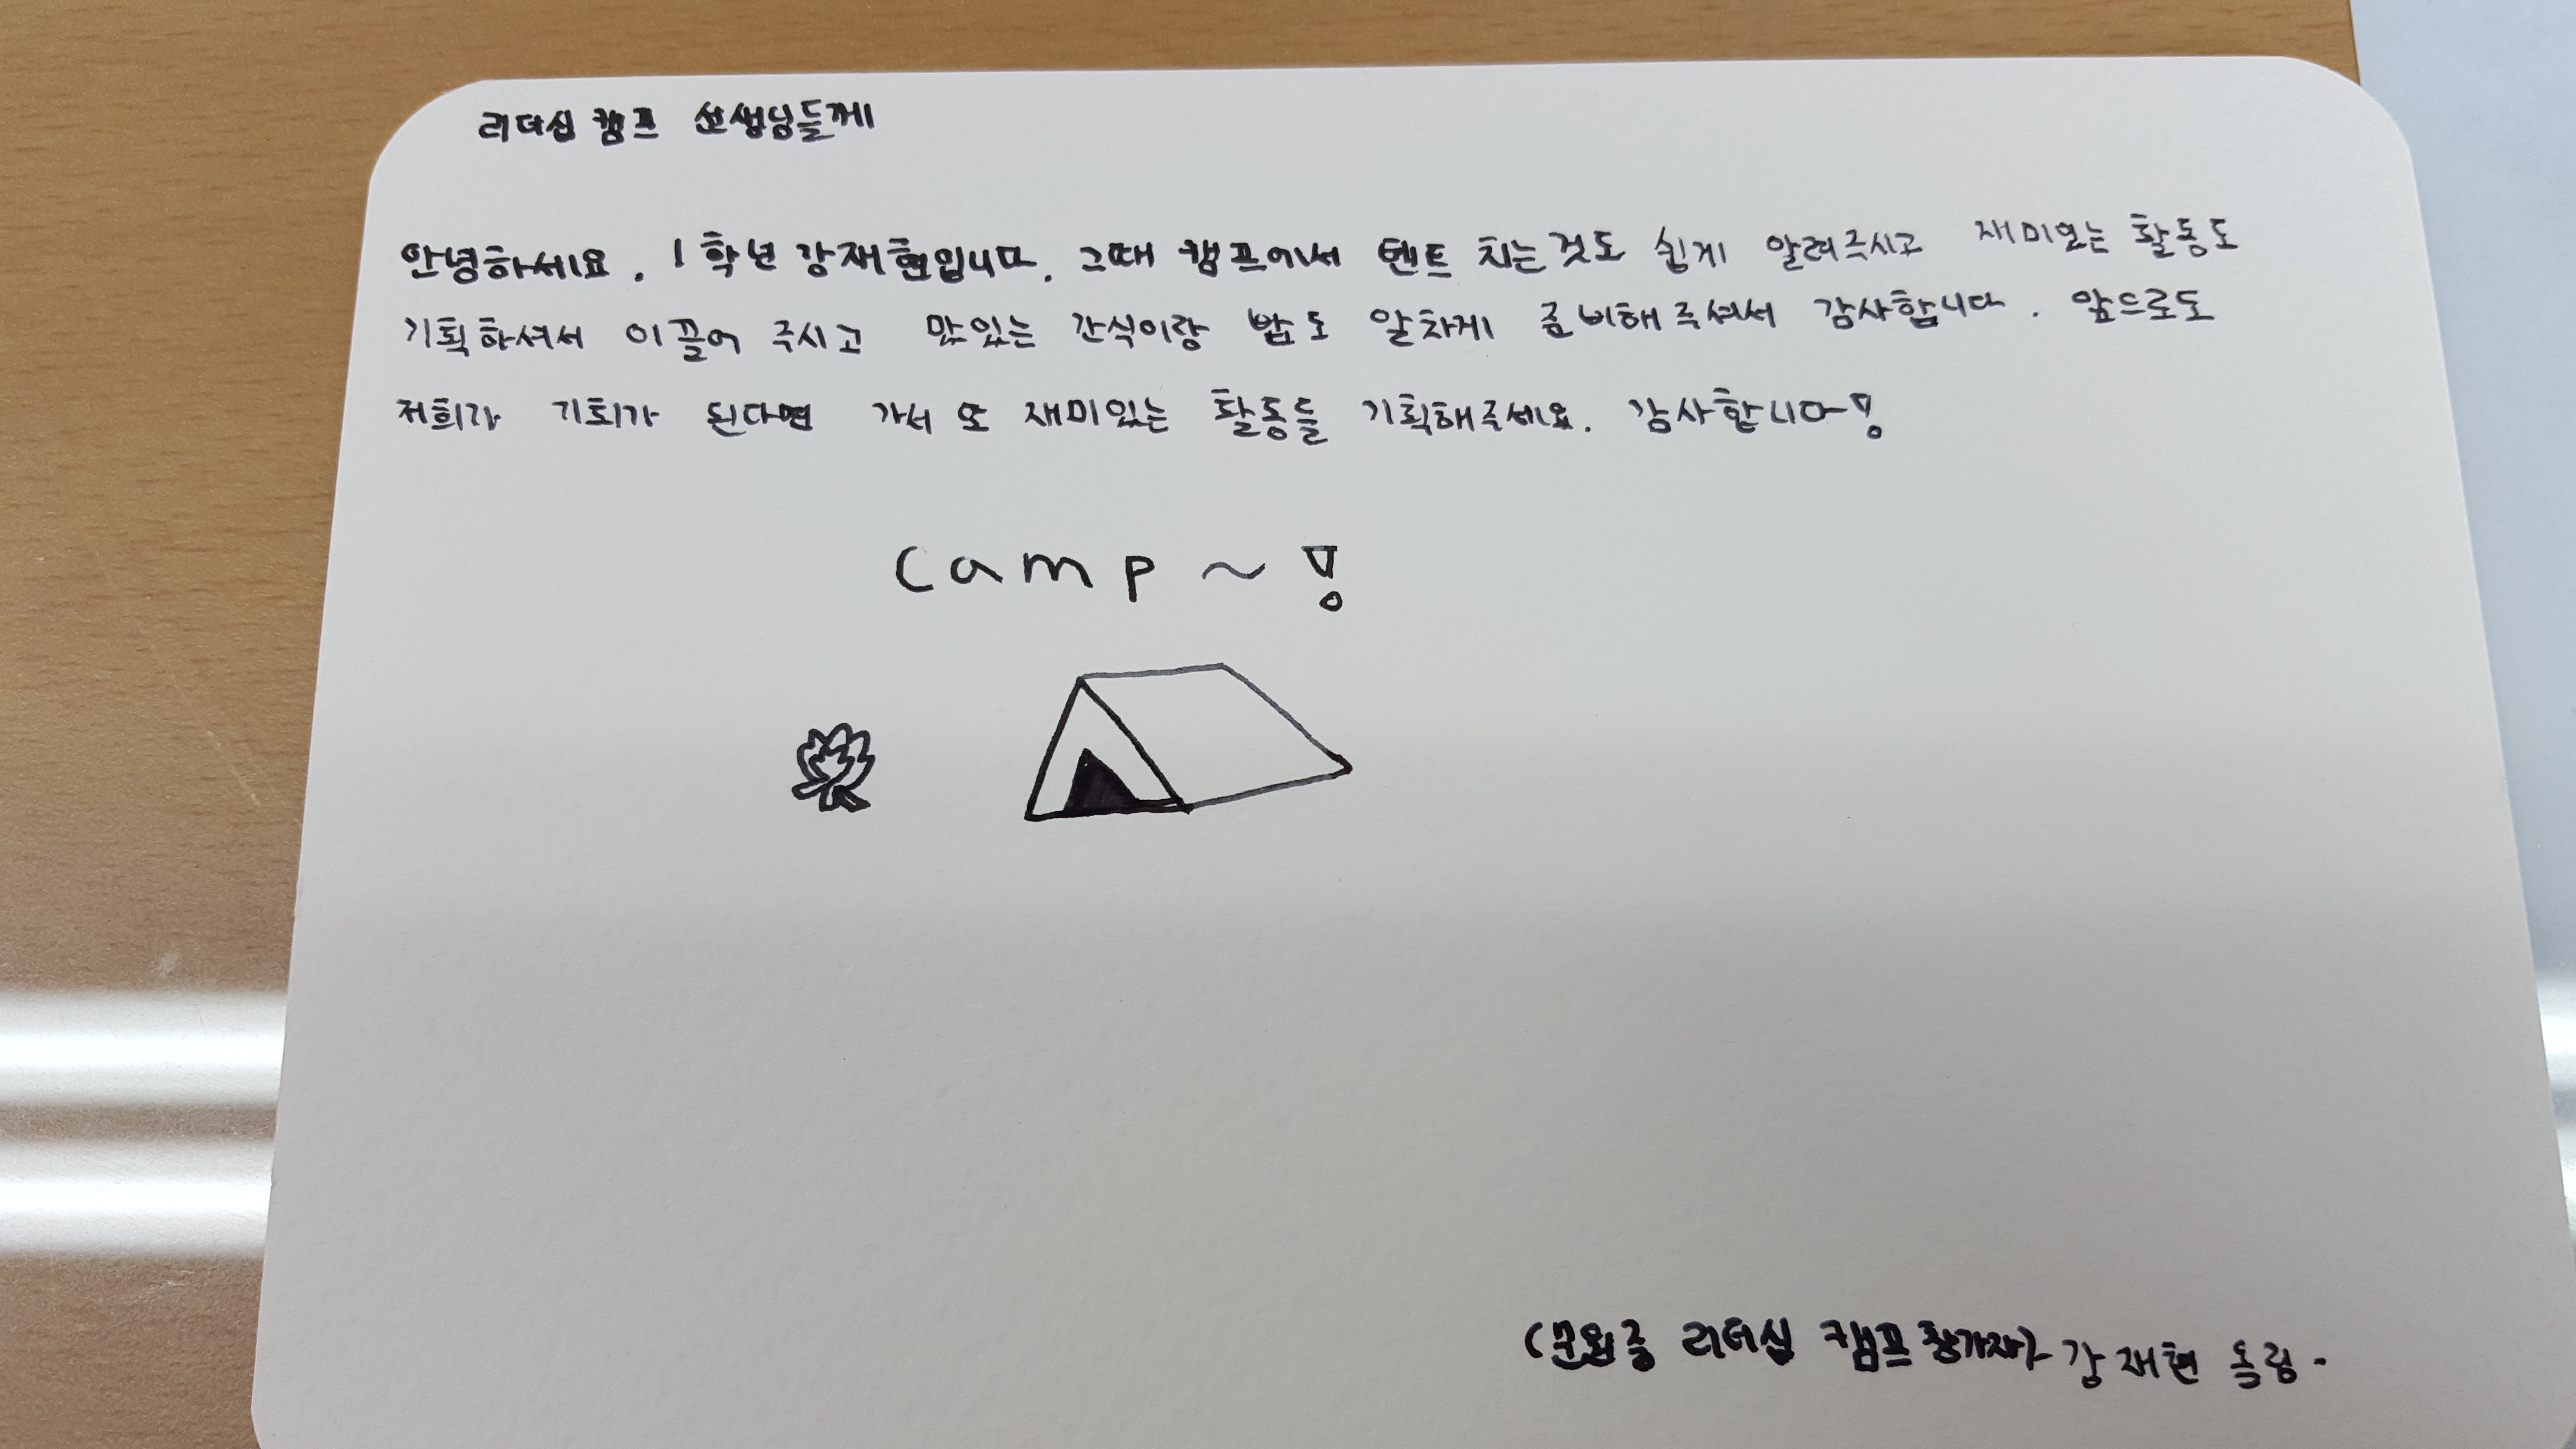 리더십 캠프 선생님들께
안녕하세요. 1학년 강재현입니다. 그때 캠프에서 텐트 치는것도 쉽게 알려주시고 재미있는 활동도
기획하셔서 이끌어 주시고 맛있는 간식이랑 밥도 알차게 준비해주셔서 감사합니다. 앞으로도
저희가 기회가 된다면 가서 또 재미있는 활동들 기획해주세요. 감사합니다!
camp~!
리더십 캠프 참가자) 강재현 올림-